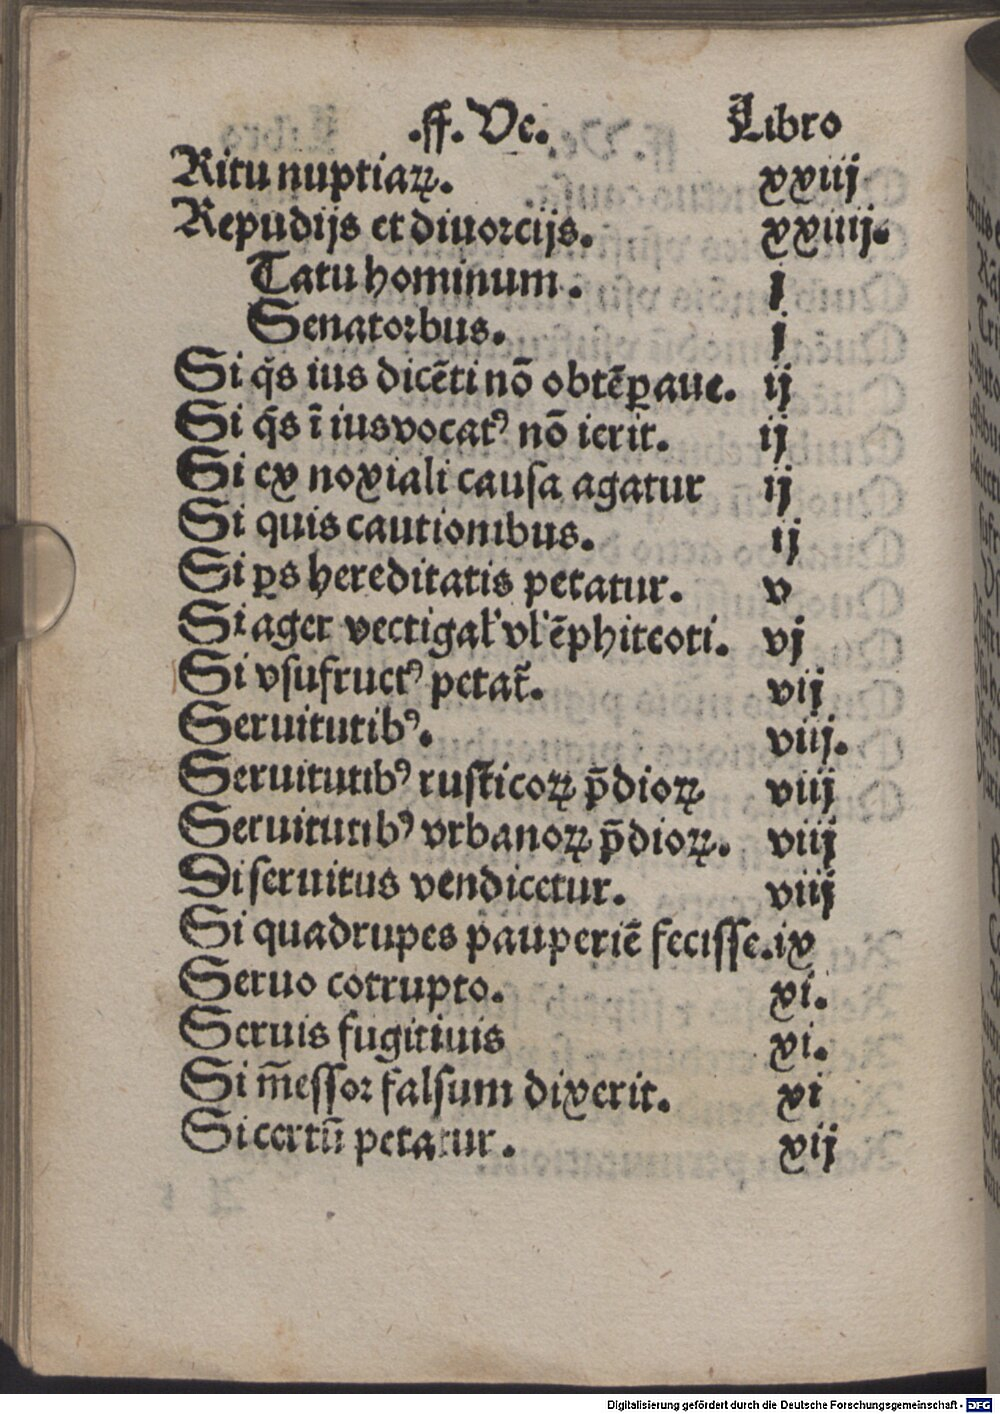 .ff. Ve. Libro
Ritu nuptiaꝝ. xxiij
Repudijs et diuorcijs. xxiiij.
Tatu hominum. j
Senatorbus. j
Si q̃s ius dicẽti nõ obtẽꝑaue. ij
Si q̃s ĩ ius vocatꝰ nõ ierit. ij
Si ex noxiali causa agatur ij
Si quis cautionibus. ij
Si ꝑs hereditatis petatur. v
Si ager vectigal' vl' ẽphiteoti. vj
Si vsufructꝰ petat̃. vij
Seruitutibꝰ. viij.
Seruitutibꝰ rusticoꝝ p̃dioꝝ viij
Seruitutibꝰ vrbanoꝝ p̃dioꝝ. viij
Si seruitus vendicetur. viij
Si quadrupes pauperiẽ fecisse. ix
Seruo corrupto. xi.
Seruis fugitiuis xi.
Si m̃essor falsum dixerit. xi
Si certũ petatur. xij
Digitalisierung gefördert durch die Deutsche Forschungsgemeinschaft - DFG